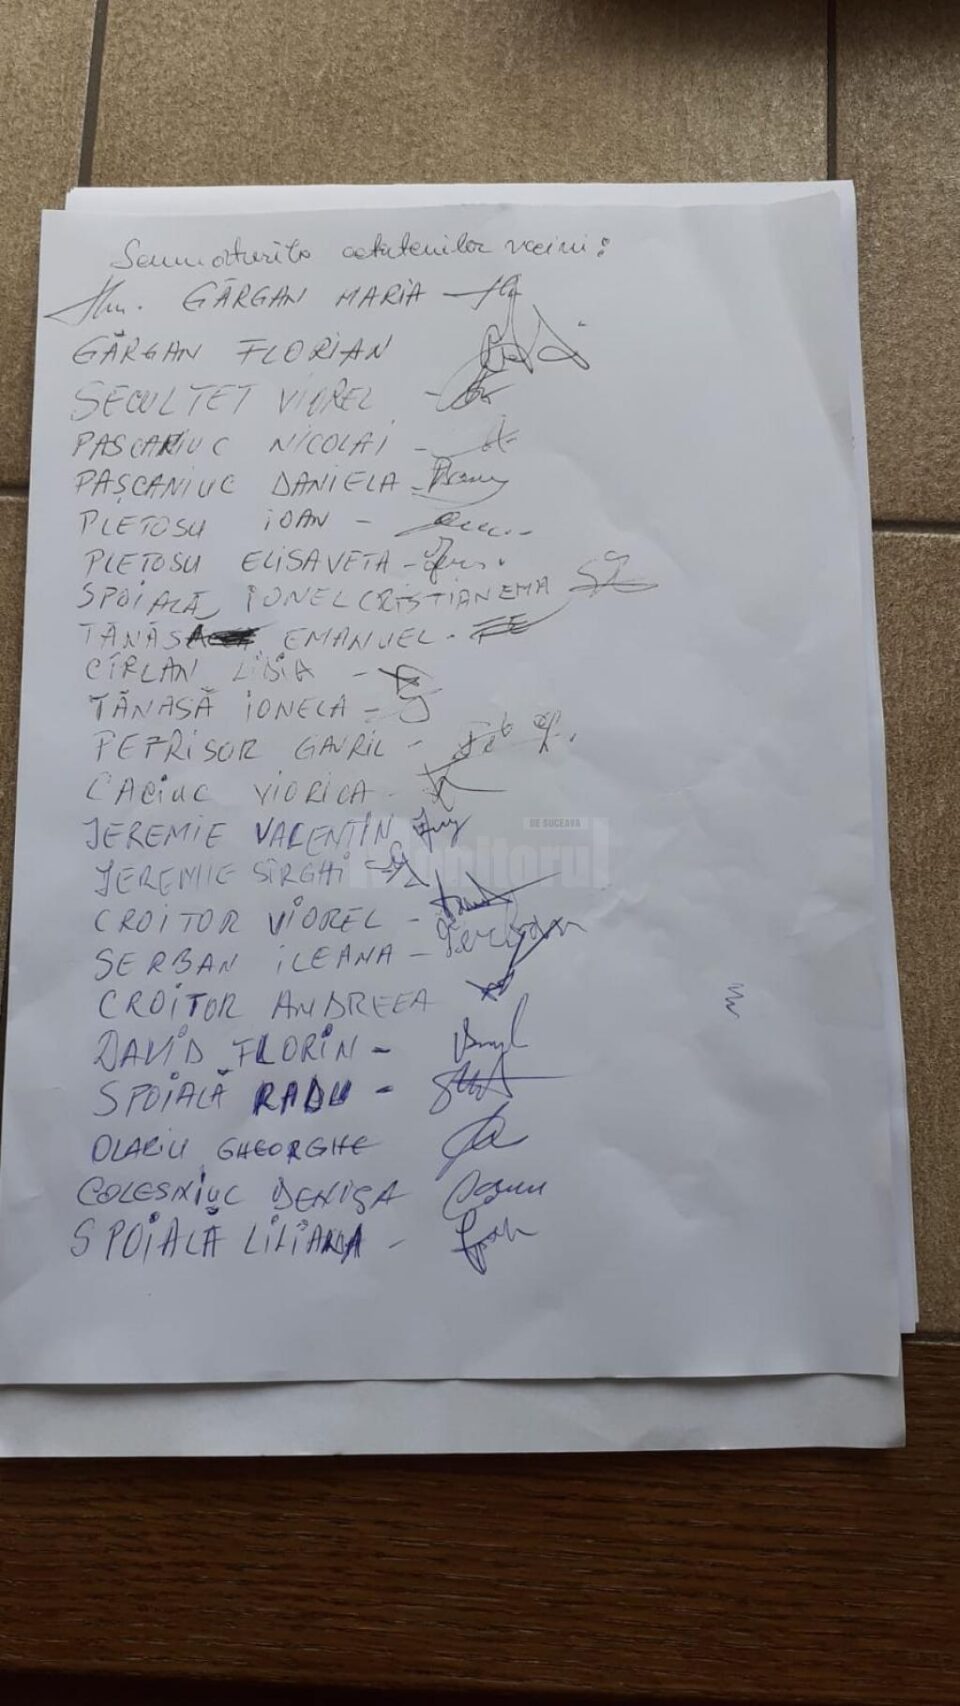 Semnăturile cetătenilor vecini:
GĂRGAN MARIA
GĂRGAN FLORIAN
SECULTET VIOREL -
PASCARIUC NICOLAI -
PAȘCANIUC DANIELA -
PLETOSU IOAN -
PLETOSU ELISAVETA -
SPOIALĂ IONEL CRISTIAN EMA
TĂNĂSA EMANUEL -
CÎRLAN LIDIA -
TĂNASĂ IONELA -
PETRISOR GAVRIL -
CACIUC VIORICA -
IEREMIE VALENTIN
IEREMIE SÎRGHI
DE SUCEAVA
Monitorul
CROITOR VIOREL -
SERBAN ILEANA - Serban
CROITOR ANDREEA
DAVID FLORIN -
SPOIALĂ RADU -
OLARIU GHEORGHE
COLESNIUC DENISA
SPOIALĂ LILIANA -